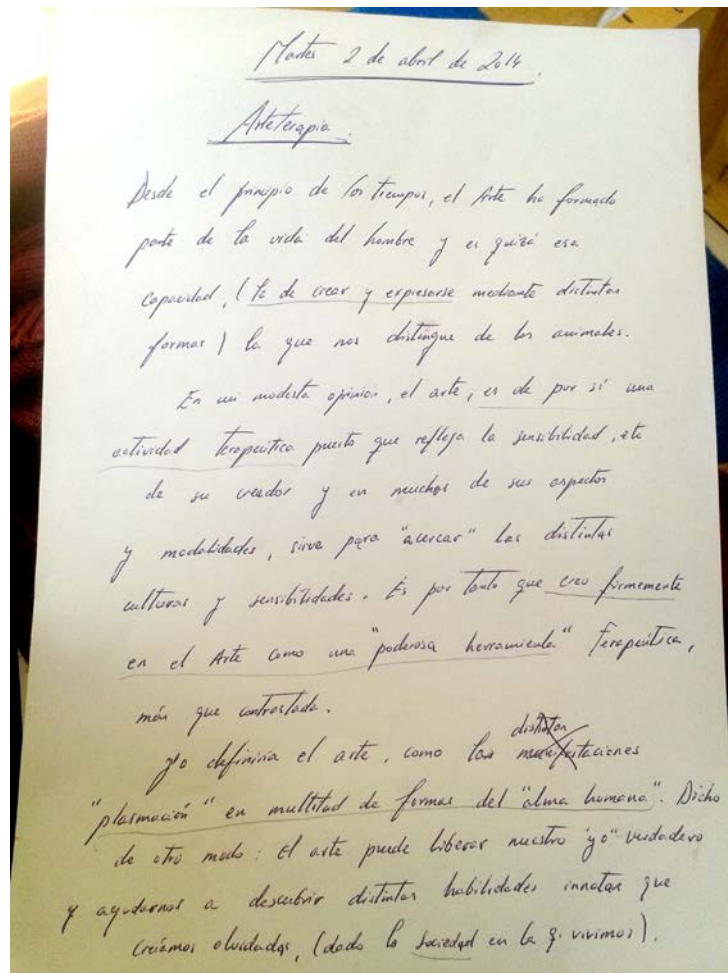 Martes 2 de abril de 2014.
Arteterapia.
Desde el principio de los tiempos, el Arte ha formado
parte de la vida del hombre y es quizá esa
capacidad, (la de crear y expresarse mediante distintas
formas) la que nos distingue de los animales.
En mi modesta opinión, el arte, es de por sí una
actividad terapeútica puesto que refleja la sensibilidad, etc
de su creador y en muchos de sus aspectos
y modalidades, sirve para "acercar" las distintas
culturas y sensibilidades. Es por tanto que creo firmemente
en el Arte como una "poderosa herramienta" Terapeútica,
más que contrastada.
distintas
Yo definiría el arte, como las manifestaciones
"plasmación" en multitud de formas del "alma humana". Dicho
de otro modo: el arte puede liberar nuestro "yo" verdadero
y ayudarnos a descubrir distintas habilidades innatas que
creíamos olvidadas, (dado la sociedad en la q. vivimos).